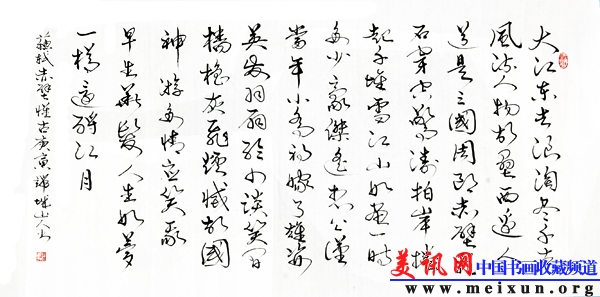 大江东去浪淘尽千古
风流人物故垒西边人
道是三國周郎赤壁乱
石穿空惊涛拍岸捲
起千堆雪江山如画一时
多少豪傑遥想公瑾
当年小乔初嫁了雄姿
英发羽扇纶巾谈笑间
樯橹灰飞烟灭故國
神游多情应笑我
早生华髮人生如梦
一樽还酹江月
蘇轼赤壁怀古庚寅城山人书
美讯网
中国书画收藏频道
www.meixun.org